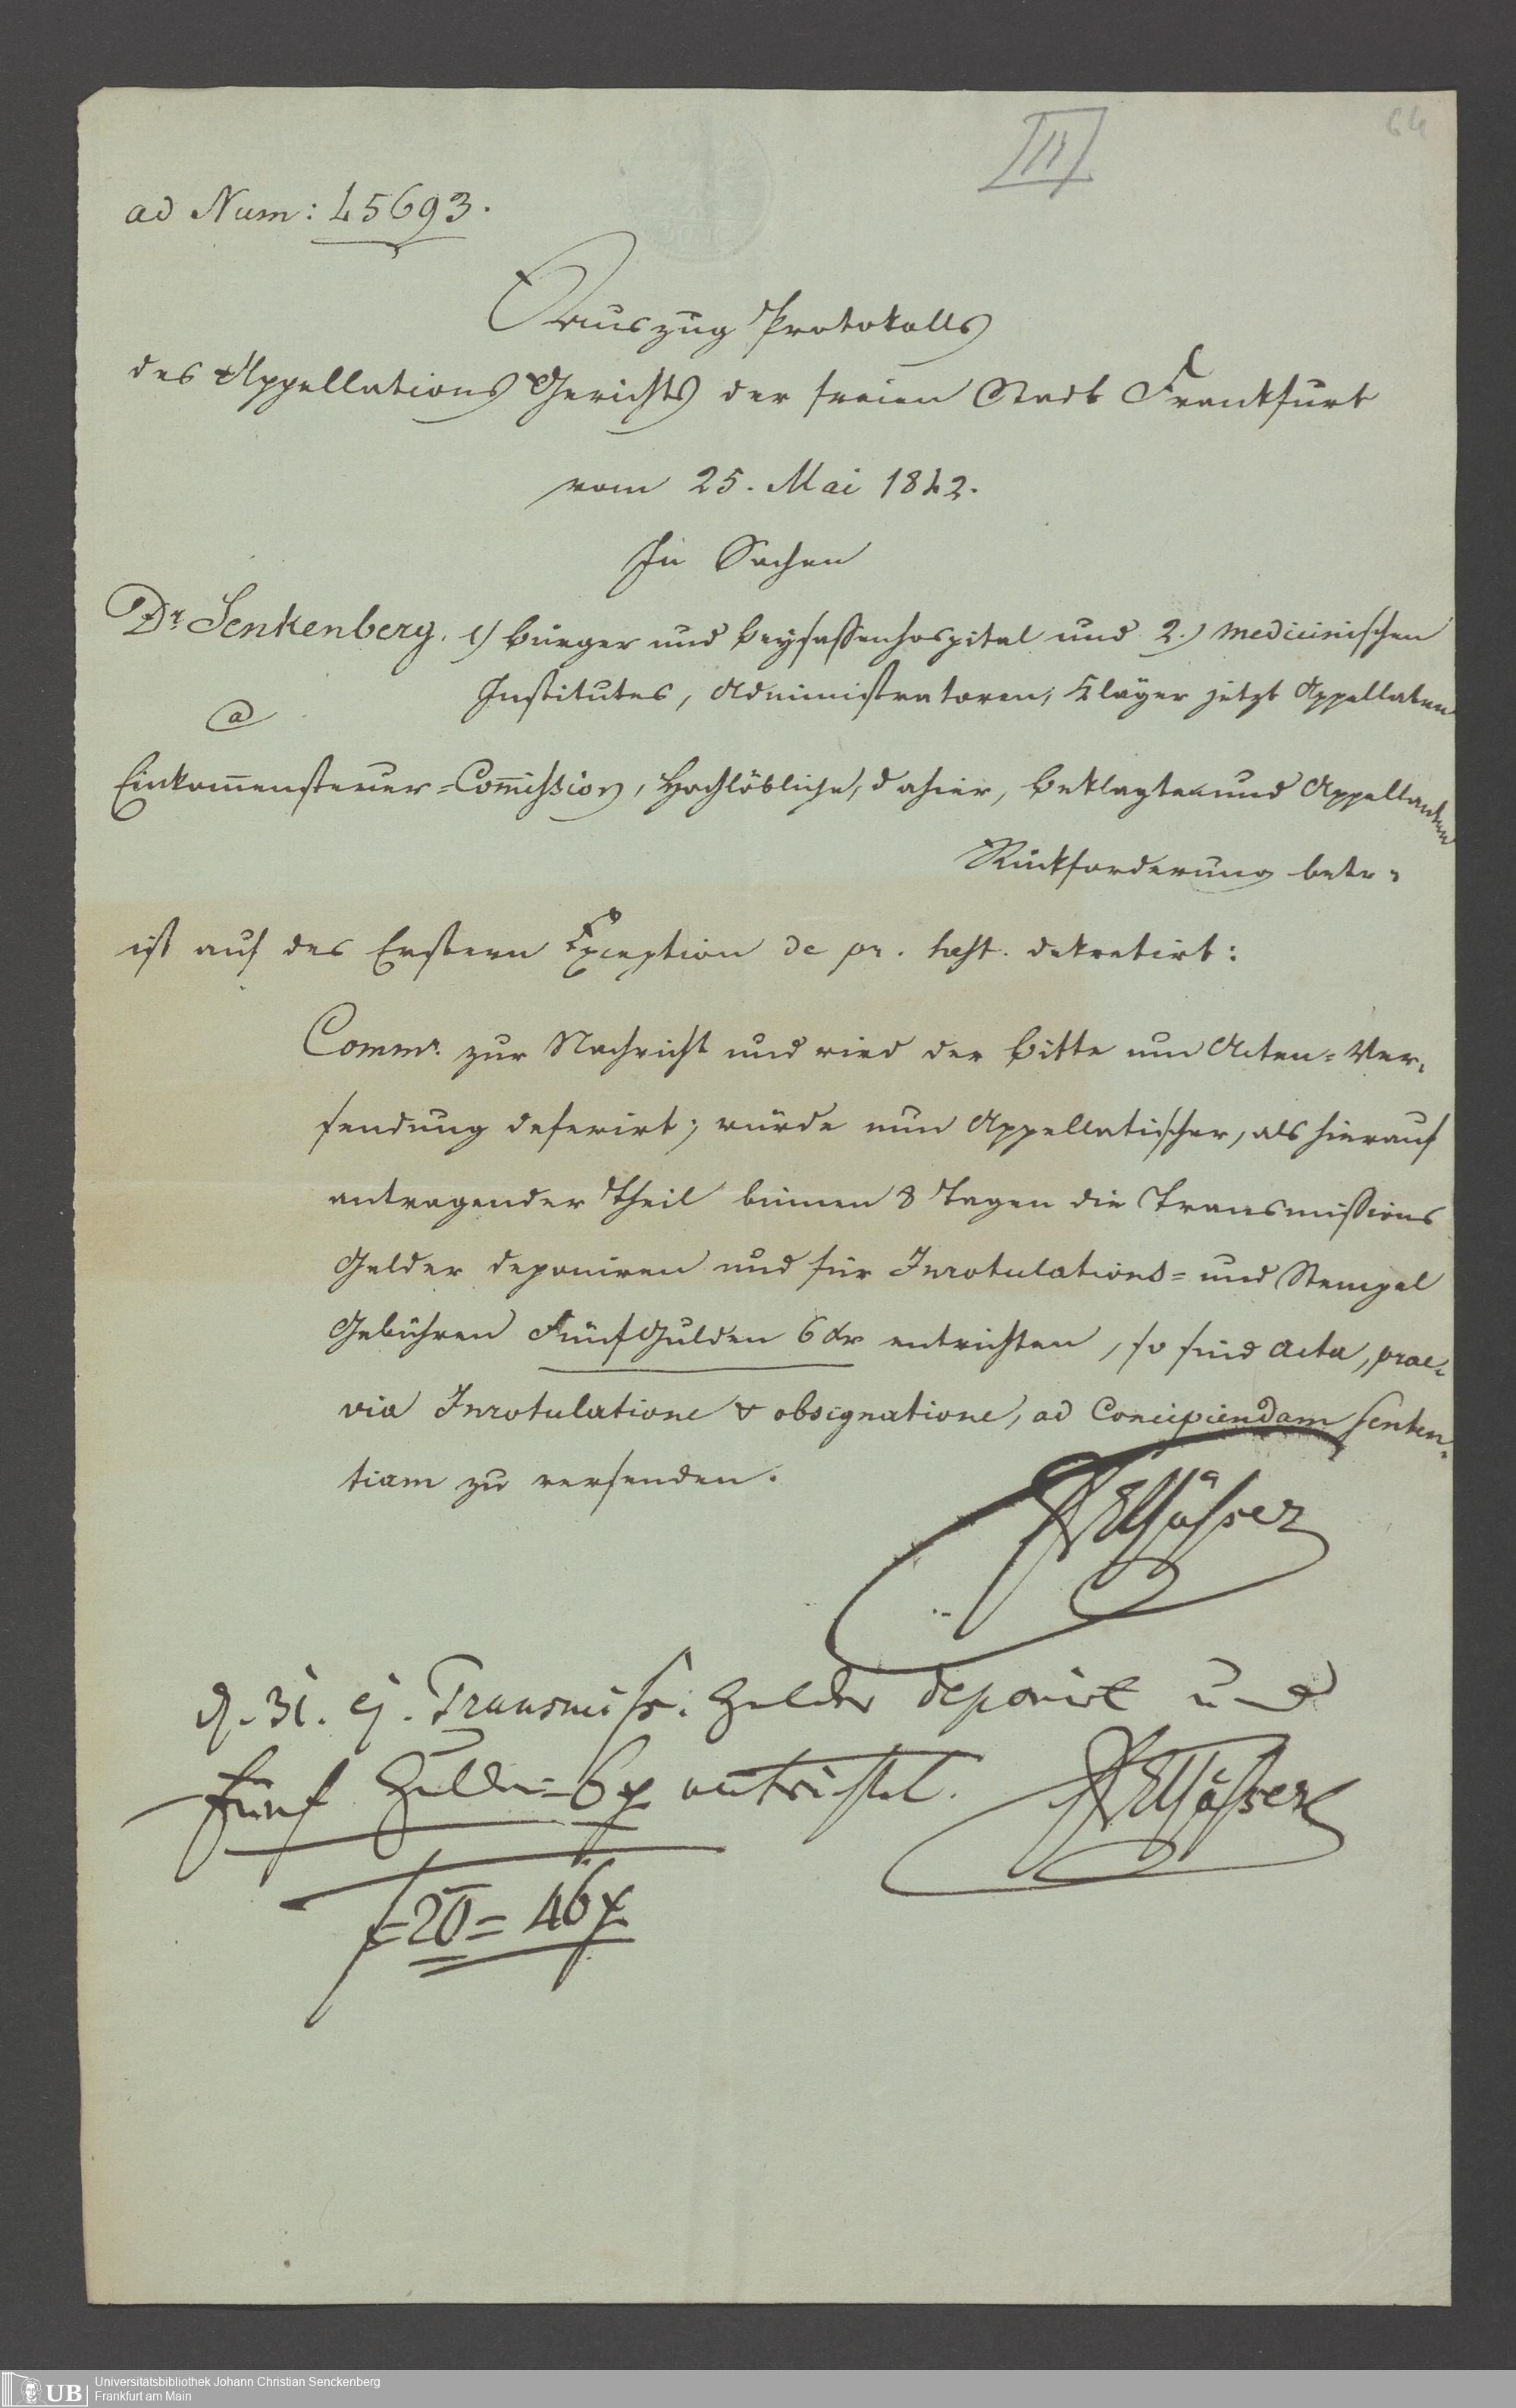 III
64
ad Num: 45693.
Auszug Protokolls
des Appellations Gerichts der freien Stadt Frankfurt
vom 25. Mai 1842.
In Sachen
Dr. Senkenberg. 1) Bürger und Beysassenhospital und 2.) medicinischen
Institutes, Administratoren, Kläger jetzt Appellaten
a
Einkom̅ensteuer=Com̅ission, Hochlöbliche, dahier, Beklagte und Appellanten
Rückforderung betr.
ist auf des Erstern Exception de pr. hest. dekretirt:
Commr. zur Nachricht und wird der Bitte um Acten=Ver=
sendung deferirt; würde nun Appellatischer, als hierauf
antragender Theil binnen 8 Tagen die Transmissions
Gelder deponiren und für Inrotulations= und Stempel
Gebühren Fünf Gulden 6 Xr entrichten, so sind Acta, prae=
via Inrotulatione & obsignatione, ad Concipiendam senten=
tiam zu versenden.
Elsässer
d. 31. ej. Transmiss. Gelder deponirt und
fünf Gulden 6 x entrichtet. Elsässer
f 20 = 46 x
UB Universitätsbibliothek Johann Christian Senckenberg
Frankfurt am Main